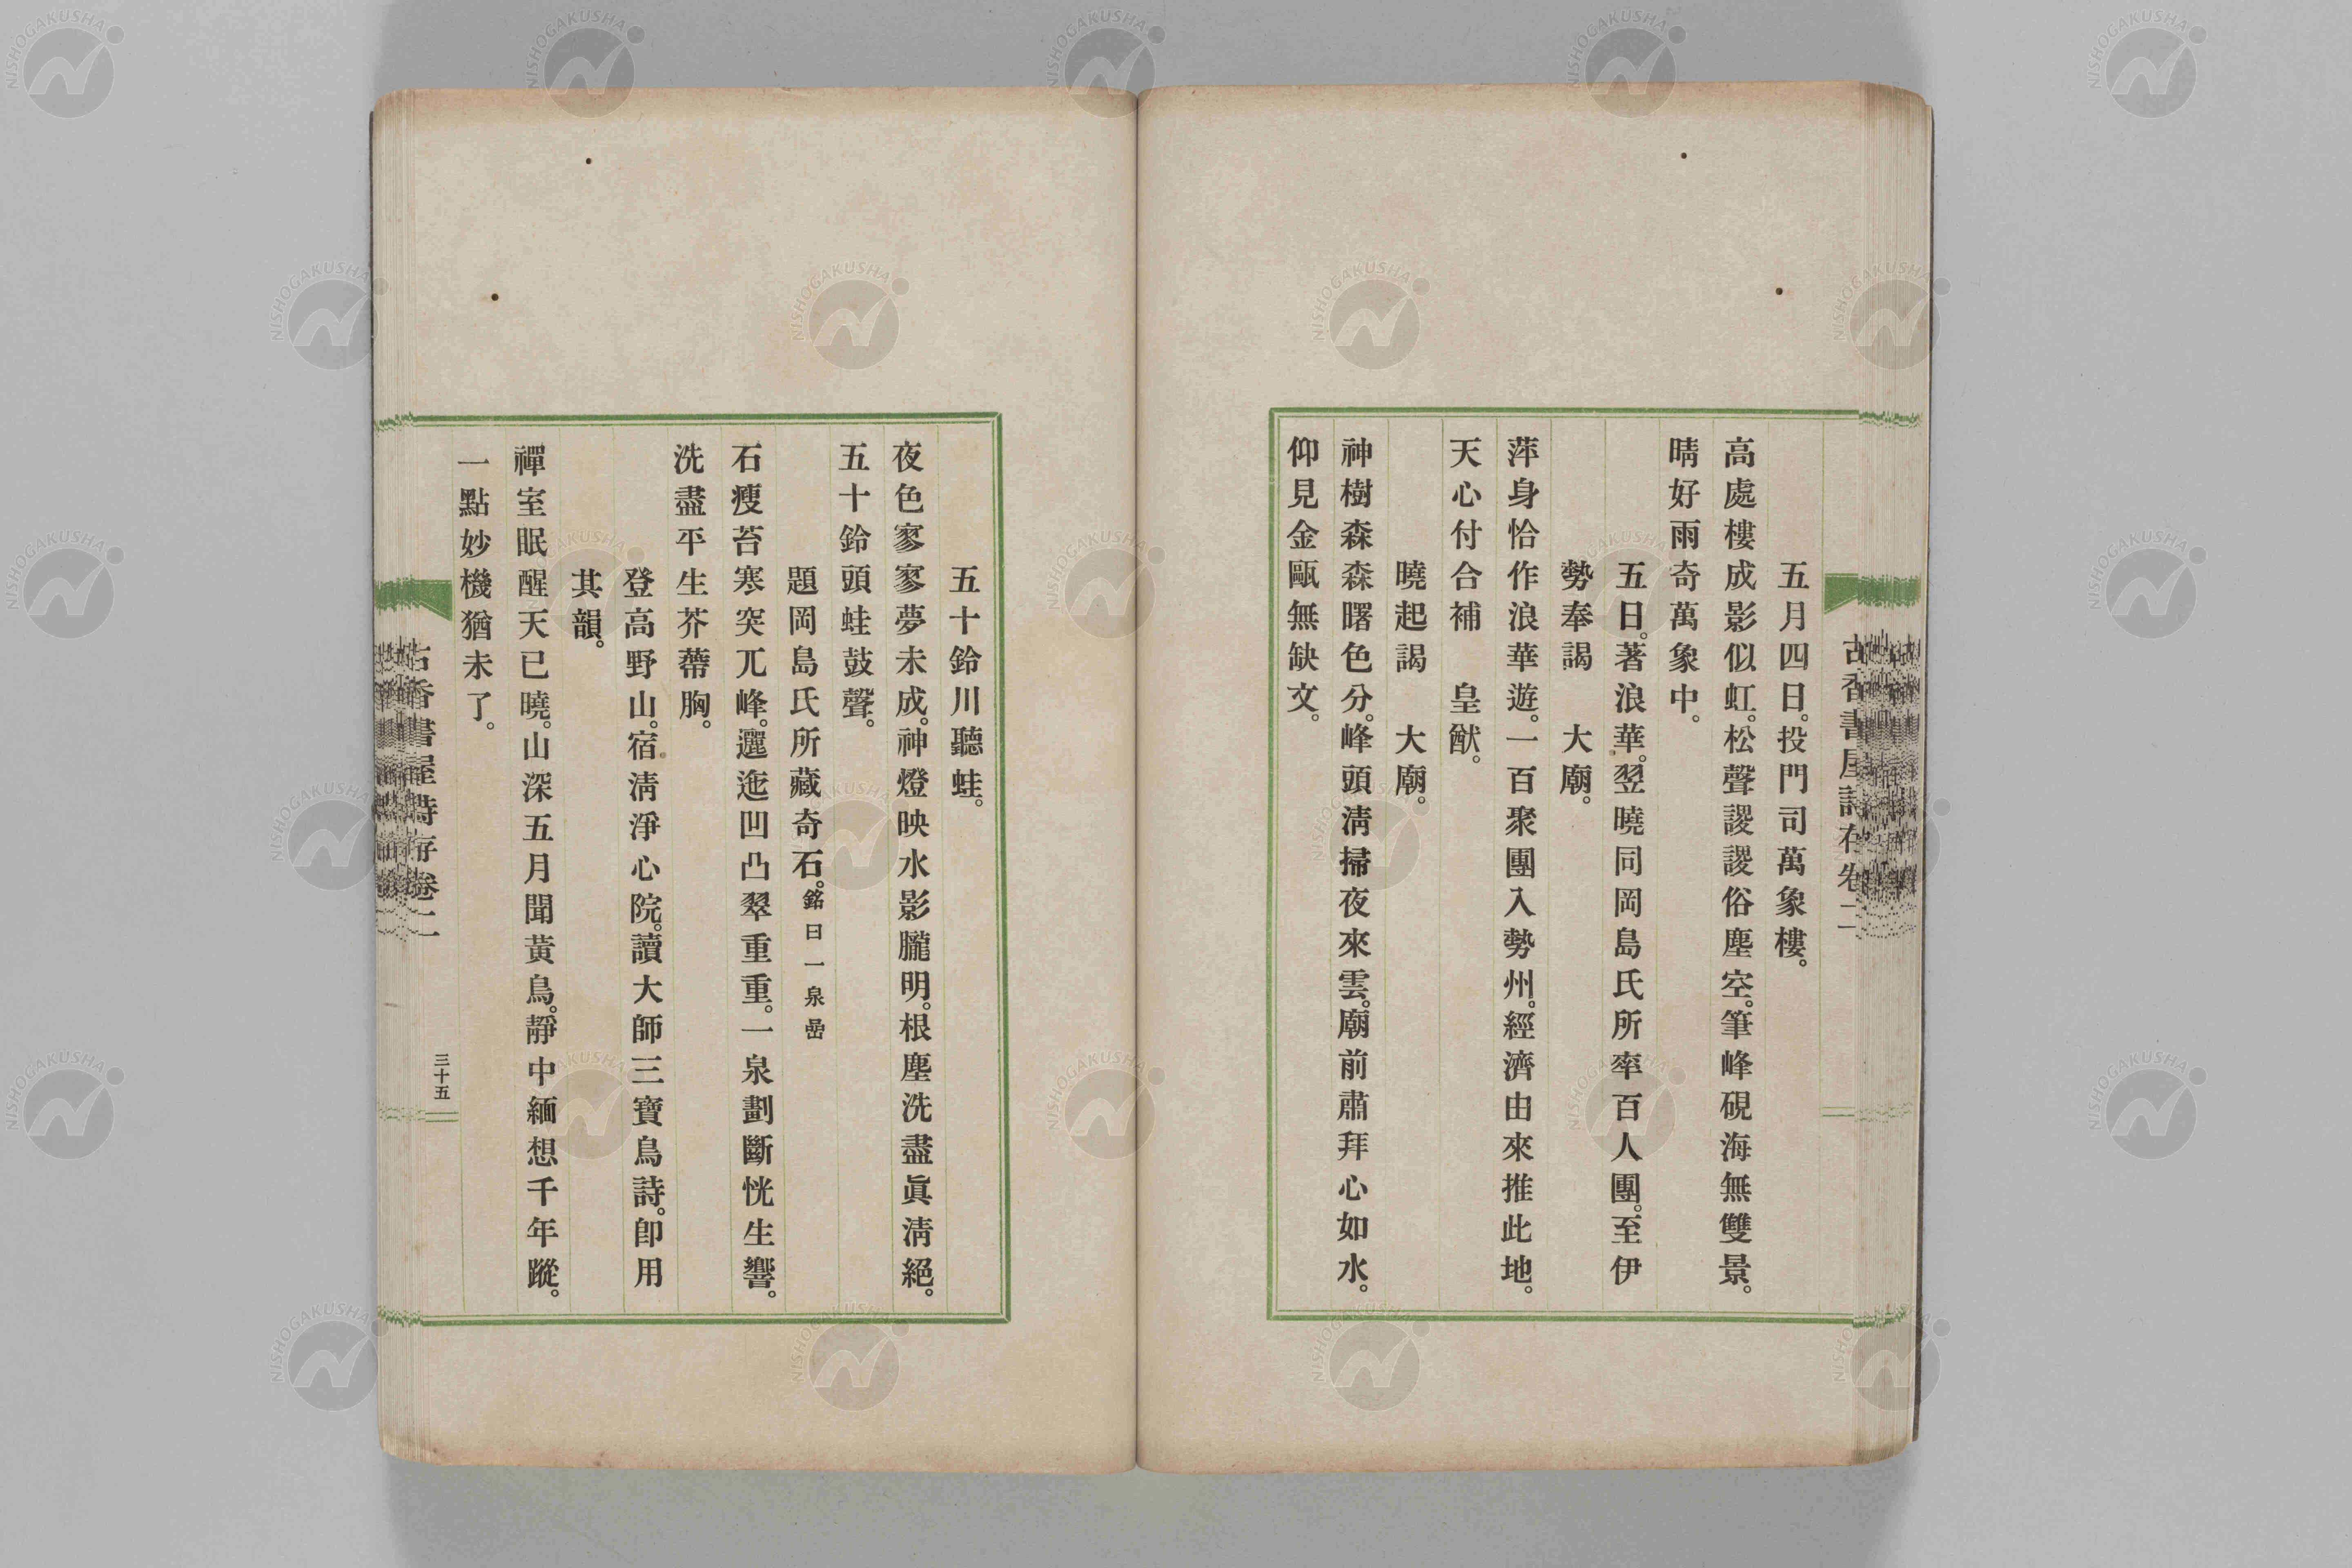 古香書屋詩存卷二
五月四日。投門司萬象樓。
高處樓成影似虹。松聲謖謖俗塵空。筆峰硯海無雙景。
晴好雨奇萬象中。
五日。著浪華。翌曉同岡島氏所率百人團。至伊
勢奉謁　大廟。
萍身恰作浪華遊。一百聚團入勢州。經濟由來推此地。
天心付合補　皇猷。
曉起謁　大廟。
神樹森森曙色分。峰頭淸掃夜來雲。廟前肅拜心如水。
仰見金甌無缺文。
五十鈴川聽蛙。
夜色寥寥夢未成。神燈映水影朧明。根塵洗盡眞淸絕。
五十鈴頭蛙鼓聲。
題岡島氏所藏奇石。銘曰一泉嵒
石瘦苔寒突兀峰。邐迤凹凸翠重重。一泉劃斷恍生響。
洗盡平生芥蔕胸。
登高野山。宿淸淨心院。讀大師三寶鳥詩。卽用
其韻。
禪室眠醒天已曉。山深五月聞黃鳥。靜中緬想千年蹤。
一點妙機猶未了。
古香書屋詩存卷二
三十五
NISHOGAKUSHA